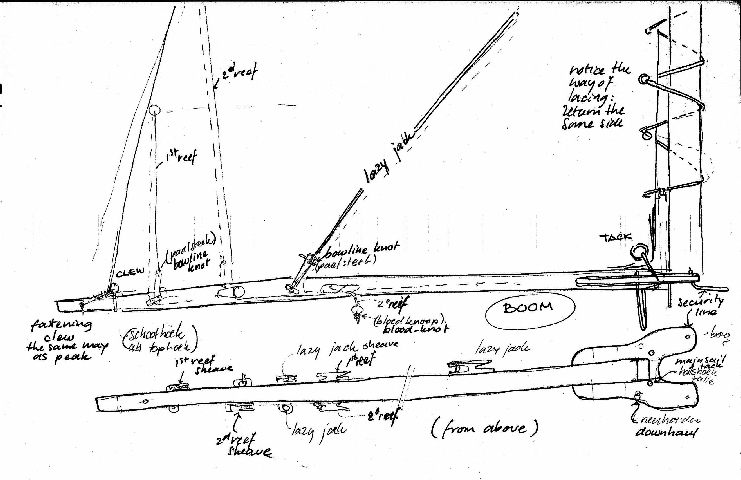 2nd reef
notice the
way of
lacing:
return the
same side
1st reef
lazy jack
(paalsteek)
bowline
knot
bowline knot
(paalsteek)
TACK
CLEW
2e reef
(bloedknoop)
blood-knot
BOOM
security
line
fastening
clew
the same way
as peak
(schoothoek
als tophoek)
1st reef
sheave
lazy jack sheave
1st reef
lazy jack
tack
2nd reef
sheave
lazy jack
2e reef
(from above)
downhaul